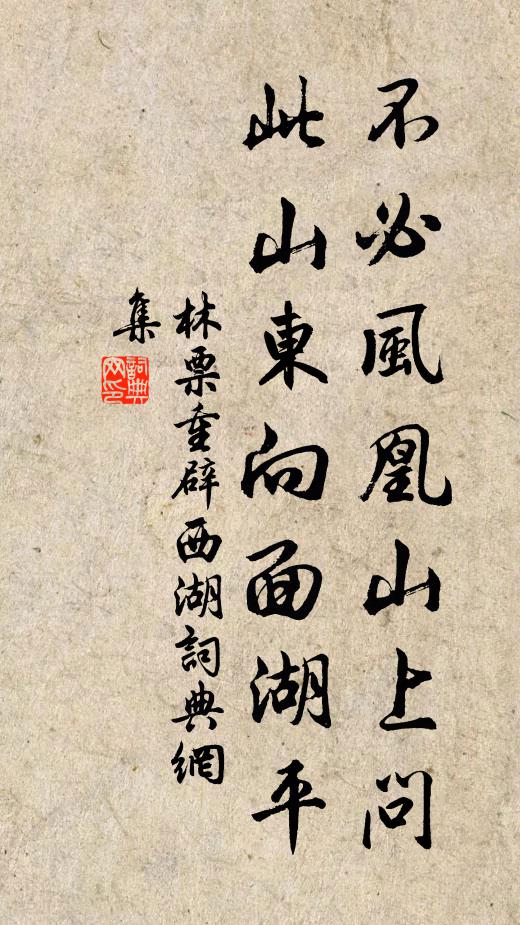 不必風凰山上問
此山東向面湖平
林栗重辟西湖詞典網
集
詞典
网印